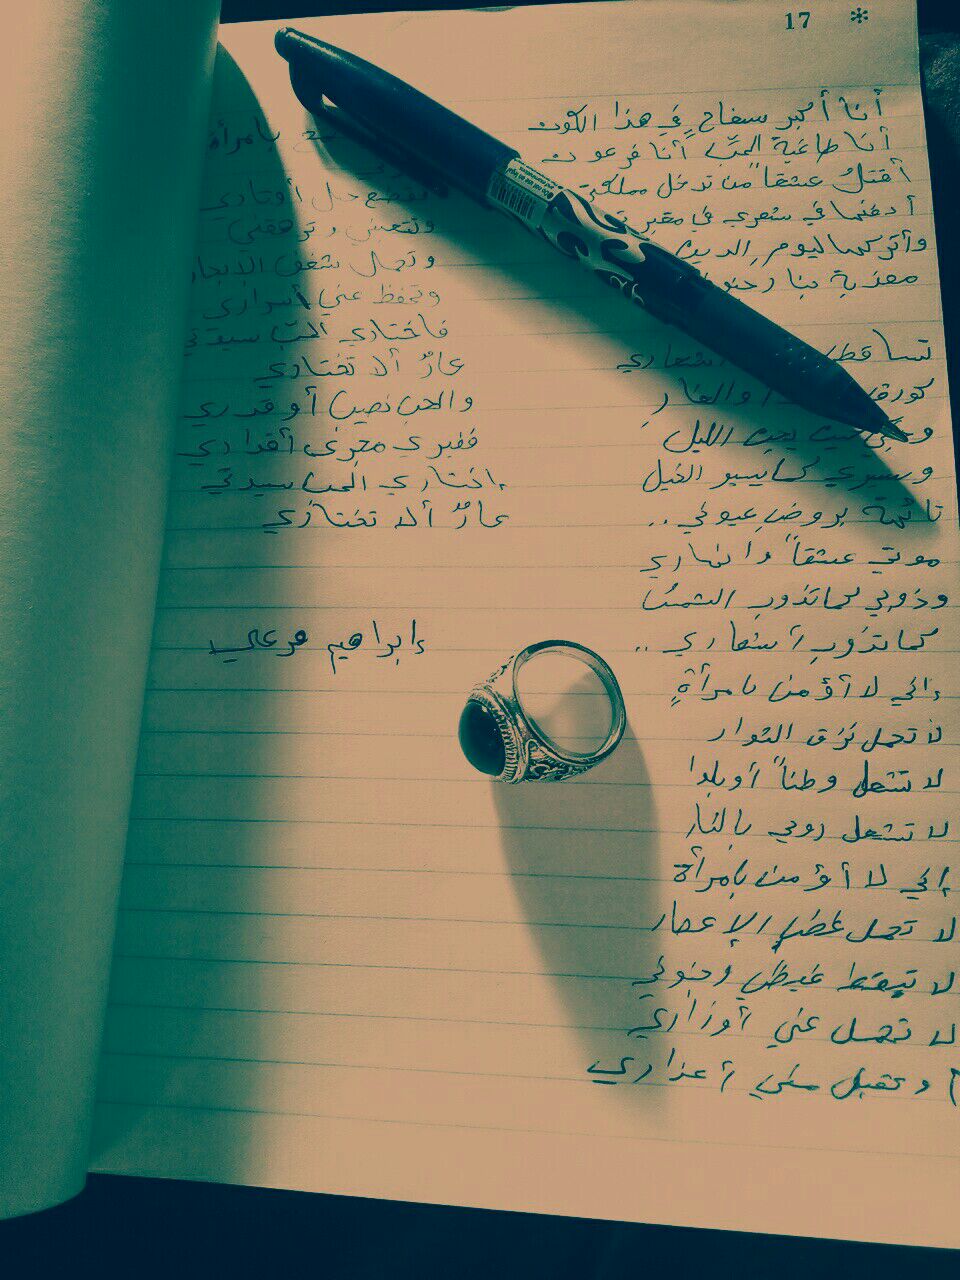 17 *
أنا أكبر سفاح في هذا الكون
أنا طاغية الحب أنا فرعون
أقتل عشقاً من تدخل مملكتي
أدفنها في شعري في مقبرتي
وأتركها ليوم الدين
معذبة بنار جنوني
تساقطي أشعاري
كورق والغار
الليل
وسيري كما يسير الخيل
تائهة بروض عيوني ..
موتي عشقاً وانهاري
وذوبي كما تذوب الشمس
كما تذوب أشعاري ..
إني لا أؤمن بامرأةٍ
لا تحمل نزق الثوار
لا تشعل وطناً أو بلدا
لا تشعل روحي بالنار
إني لا أؤمن بامرأة
لا تحمل غضب الإعصار
لا غيظي وجنوني
لا تحمل عني أوزاري
وتقبل مني أعذاري
بامرأة
أوتاري
وتتعبني وترهقني
وتحمل شغف الإبحار
وتحفظ عني أسراري
فاختاري الحب سيدتي
عارٌ ألا تختاري
والحب نصيب أو قدري
فغيري مجرى أقداري
إختاري الحب سيدتي
عارٌ ألا تختاري
إبراهيم مرعلي